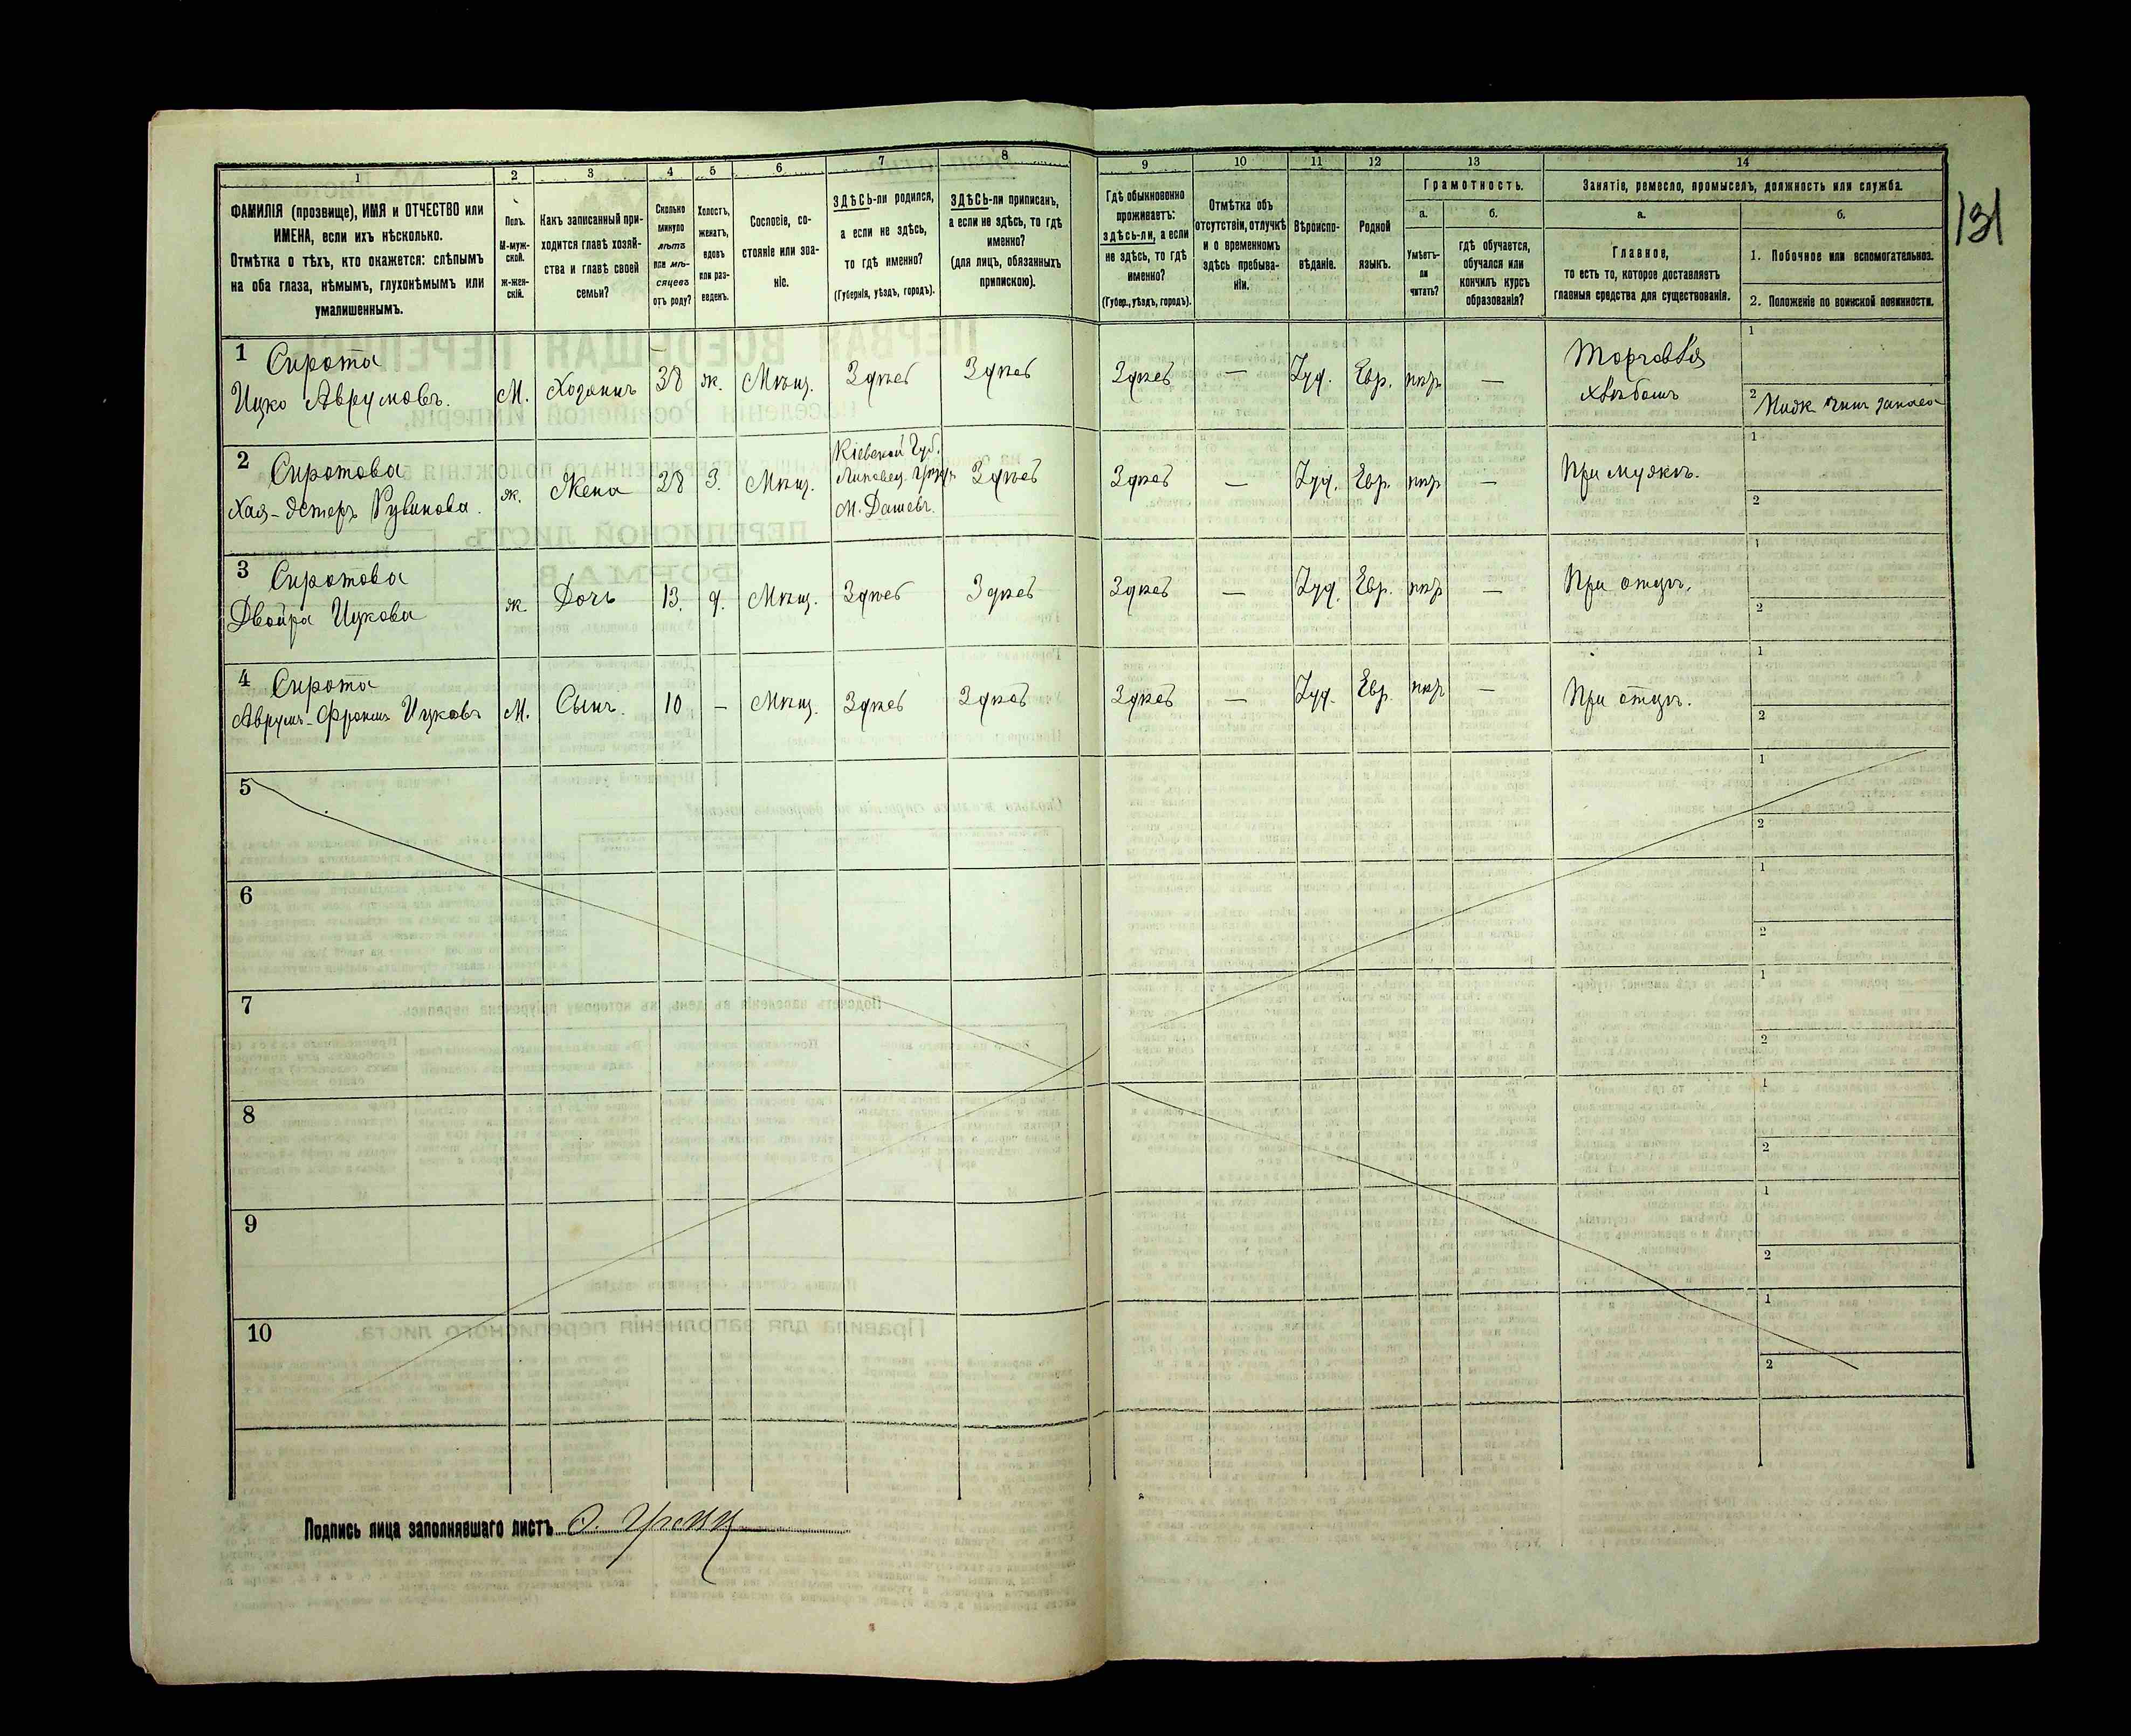 1 2 3 4 5 6 7 8 9 10 11 12 13 14
ФАМИЛІЯ (прозвище), ИМЯ и ОТЧЕСТВО или
ИМЕНА, если ихъ нѣсколько.
Отмѣтка о тѣхъ, кто окажется: слѣпымъ
на оба глаза, нѣмымъ, глухонѣмымъ или
умалишеннымъ.
Полъ.
М-муж-
ской.
Ж-жен-
скій.
Какъ записанный при-
ходится главѣ хозяй-
ства и главѣ своей
семьи?
Сколько
минуло
лѣтъ
или мѣ-
сяцевъ
отъ роду?
Холостъ,
женатъ,
вдовъ
или раз-
веденъ.
Сословіе, со-
стояніе или зва-
ніе.
ЗДѢСЬ-ли родился,
а если не здѣсь,
то гдѣ именно?
(Губернія, уѣздъ, городъ).
ЗДѢСЬ-ли приписанъ,
а если не здѣсь, то гдѣ
именно?
(для лицъ, обязанныхъ
припискою).
Гдѣ обыкновенно
проживаетъ:
здѣсь-ли, а если
не здѣсь, то гдѣ
именно?
(Губер., уѣздъ, городъ).
Отмѣтка объ
отсутствіи, отлучкѣ
и о временномъ
здѣсь пребыва-
ніи.
Вѣроиспо-
вѣданіе.
Родной
языкъ.
Грамотность.
а.
Умѣетъ-
ли
читать?
б.
гдѣ обучается,
обучался или
кончилъ курсъ
образованія?
Занятіе, ремесло, промыселъ, должность или служба.
а.
Главное,
то есть то, которое доставляетъ
главныя средства для существованія.
б.
1. Побочное или вспомогательное.
2. Положеніе по воинской повинности.
131
1 Сирота
Ицко Аврумовъ. М. Хозяинъ 38 ж. Мѣщ. Здѣсь Здѣсь Здѣсь — Іуд. Евр. —
Торговля
хлѣбомъ
1
2
2 Сиротова
Хая-Эстеръ Рувинова. ж. Жена 38 З. Мѣщ.
Кіевской Губ.
Липовец. Уѣзд.
М. Дашевъ.
Здѣсь Здѣсь — Іуд. Евр. — При мужѣ.
1
2
3 Сиротова
Двойра Ицкова ж. Дочь 13. д. Мѣщ. Здѣсь Здѣсь Здѣсь — Іуд. Евр. — При отцѣ.
1
2
4 Сирота
Аврумъ-Фроимъ Ицковъ М. Сынъ. 10 — Мѣщ. Здѣсь Здѣсь Здѣсь — Іуд. Евр. — При отцѣ.
1
2
5 1
2
6 1
2
7 1
2
8 1
2
9 1
2
10 1
2
Подпись лица заполнявшаго листъ